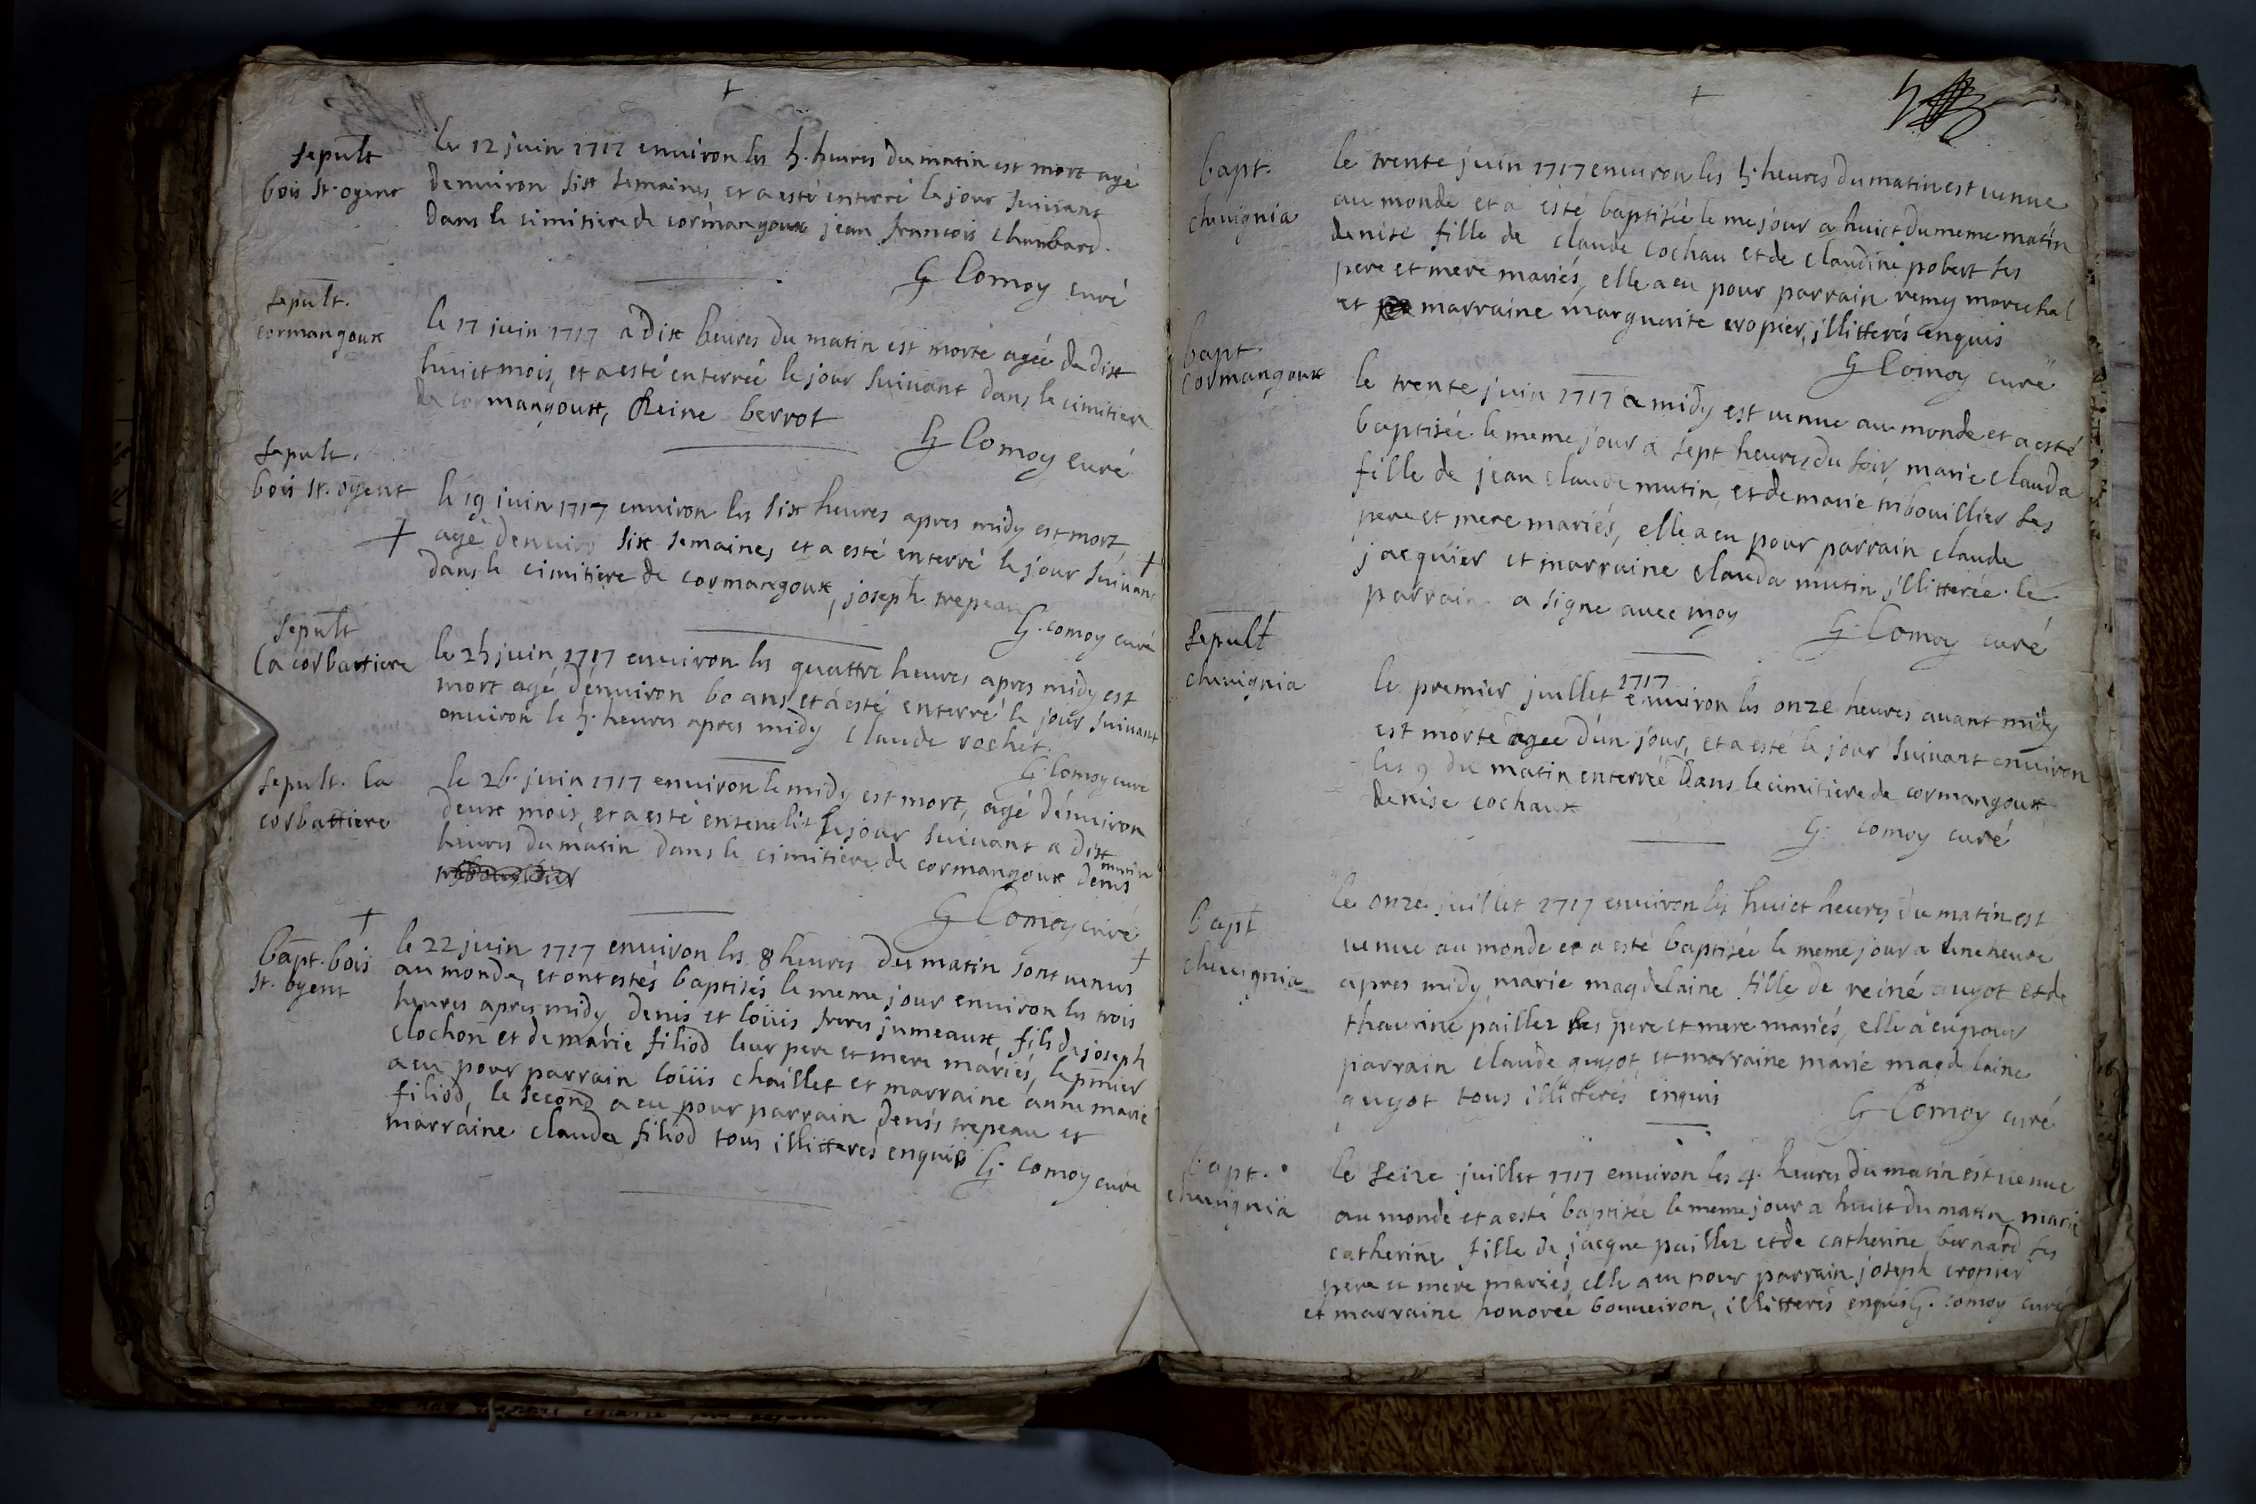 sepult
bois st. oyent
le 12 juin 1717 environ les 5. heures du matin est mort agé
denviron six semaines et a esté enterré le jour suivant
dans le cimitiere de cormangoux jean francois chambard.
G Comoy curé
sepult.
cormangoux
le 17 juin 1717 a dix heures du matin est morte agée de dix
huict mois, et a esté enterrée le jour suivant dans le cimitiere
de cormangoux, Reine berrot
G Comoy curé
sepult.
bois st. oyent
le 19 juin 1717 environ les six heures apres midy est mort,
agé denviron six semaines et a esté enterré le jour suivant
dans le cimitiere de cormangoux, joseph trepeau
G. comoy curé
sepult
la corbattiere
le 25 juin 1717 environ les quattre heures apres midy est
mort agé d'environ 60 ans et a esté enterré le jour suivant
environ le 5. heures apres midy claude rochet.
G. Comoy curé
sepult. la
corbattiere
le 26. juin 1717 environ le midy est mort, agé d'environ
deux mois, et a esté ensevelit le jour suivant a dix
heures du matin dans le cimitiere de cormangoux denis mutin
G Comoy curé
bapt. bois
st. oyent
le 22 juin 1717 environ les 8 heures du matin sont venus
au monde, et ont estés baptisés le meme jour environ les trois
heures apres midy denis et loüis freres jumeaux, fils de joseph
clochon et de marie filiod leur pere et mere mariés, le pmier
a eu pour parrain loüis chaillet et marraine anne marie
filiod, le second a eu pour parrain denis trepeau et
marraine clauda filiod tous illitterés enquis G. comoy curé
bapt.
chevignia
le trente juin 1717 environ les 5. heures du matin est venue
au monde et a esté baptisée le me jour a huict du meme matin
denise fille de claude cochau et de claudine pobert ses
pere et mere mariés, elle a eu pour parrain remy marechal
et marraine marguerite cropier, illitterés enquis
G Comoy curé
bapt.
cormangoux
le trente juin 1717 a midy est venue au monde et a esté
baptisée le meme jour a sept heures du soir marie clauda
fille de jean claude mutin et de marie tribouillier ses
pere et mere mariés, elle a eu pour parrain claude
jacquier et marraine clauda mutin illitterée. le
parrain a signe avec moy G. Comoy curé
sepult
chevignia
le premier juillet 1717 environ les onze heures avant midy
est morte agee d'un jour, et a esté le jour suivant environ
les 9 du matin enterrée dans le cimitiere de cormangoux
denise cochaux
G. comoy curé
bapt
chevignia
le onze juillet 1717 environ les huict heures du matin est
venue au monde et a esté baptisée le meme jour a une heure
apres midy marie magdelaine fille de reiné guyot et de
thaurine paillez ses pere et mere mariés, elle a eu pour
parrain claude guyot et marraine marie magdelaine
guyot tous illitterés enquis
G Comoy curé
bapt.
chevignia
le seize juillet 1717 environ les 4. heures du matin est venue
au monde et a esté baptisée le meme jour a huict du matin marie
catherine fille de jacque paillez et de catherine bernard ses
pere et mere mariés, elle a eu pour parrain joseph cropier
et marraine honorée bouveiron, illitterés enquis G. comoy curé